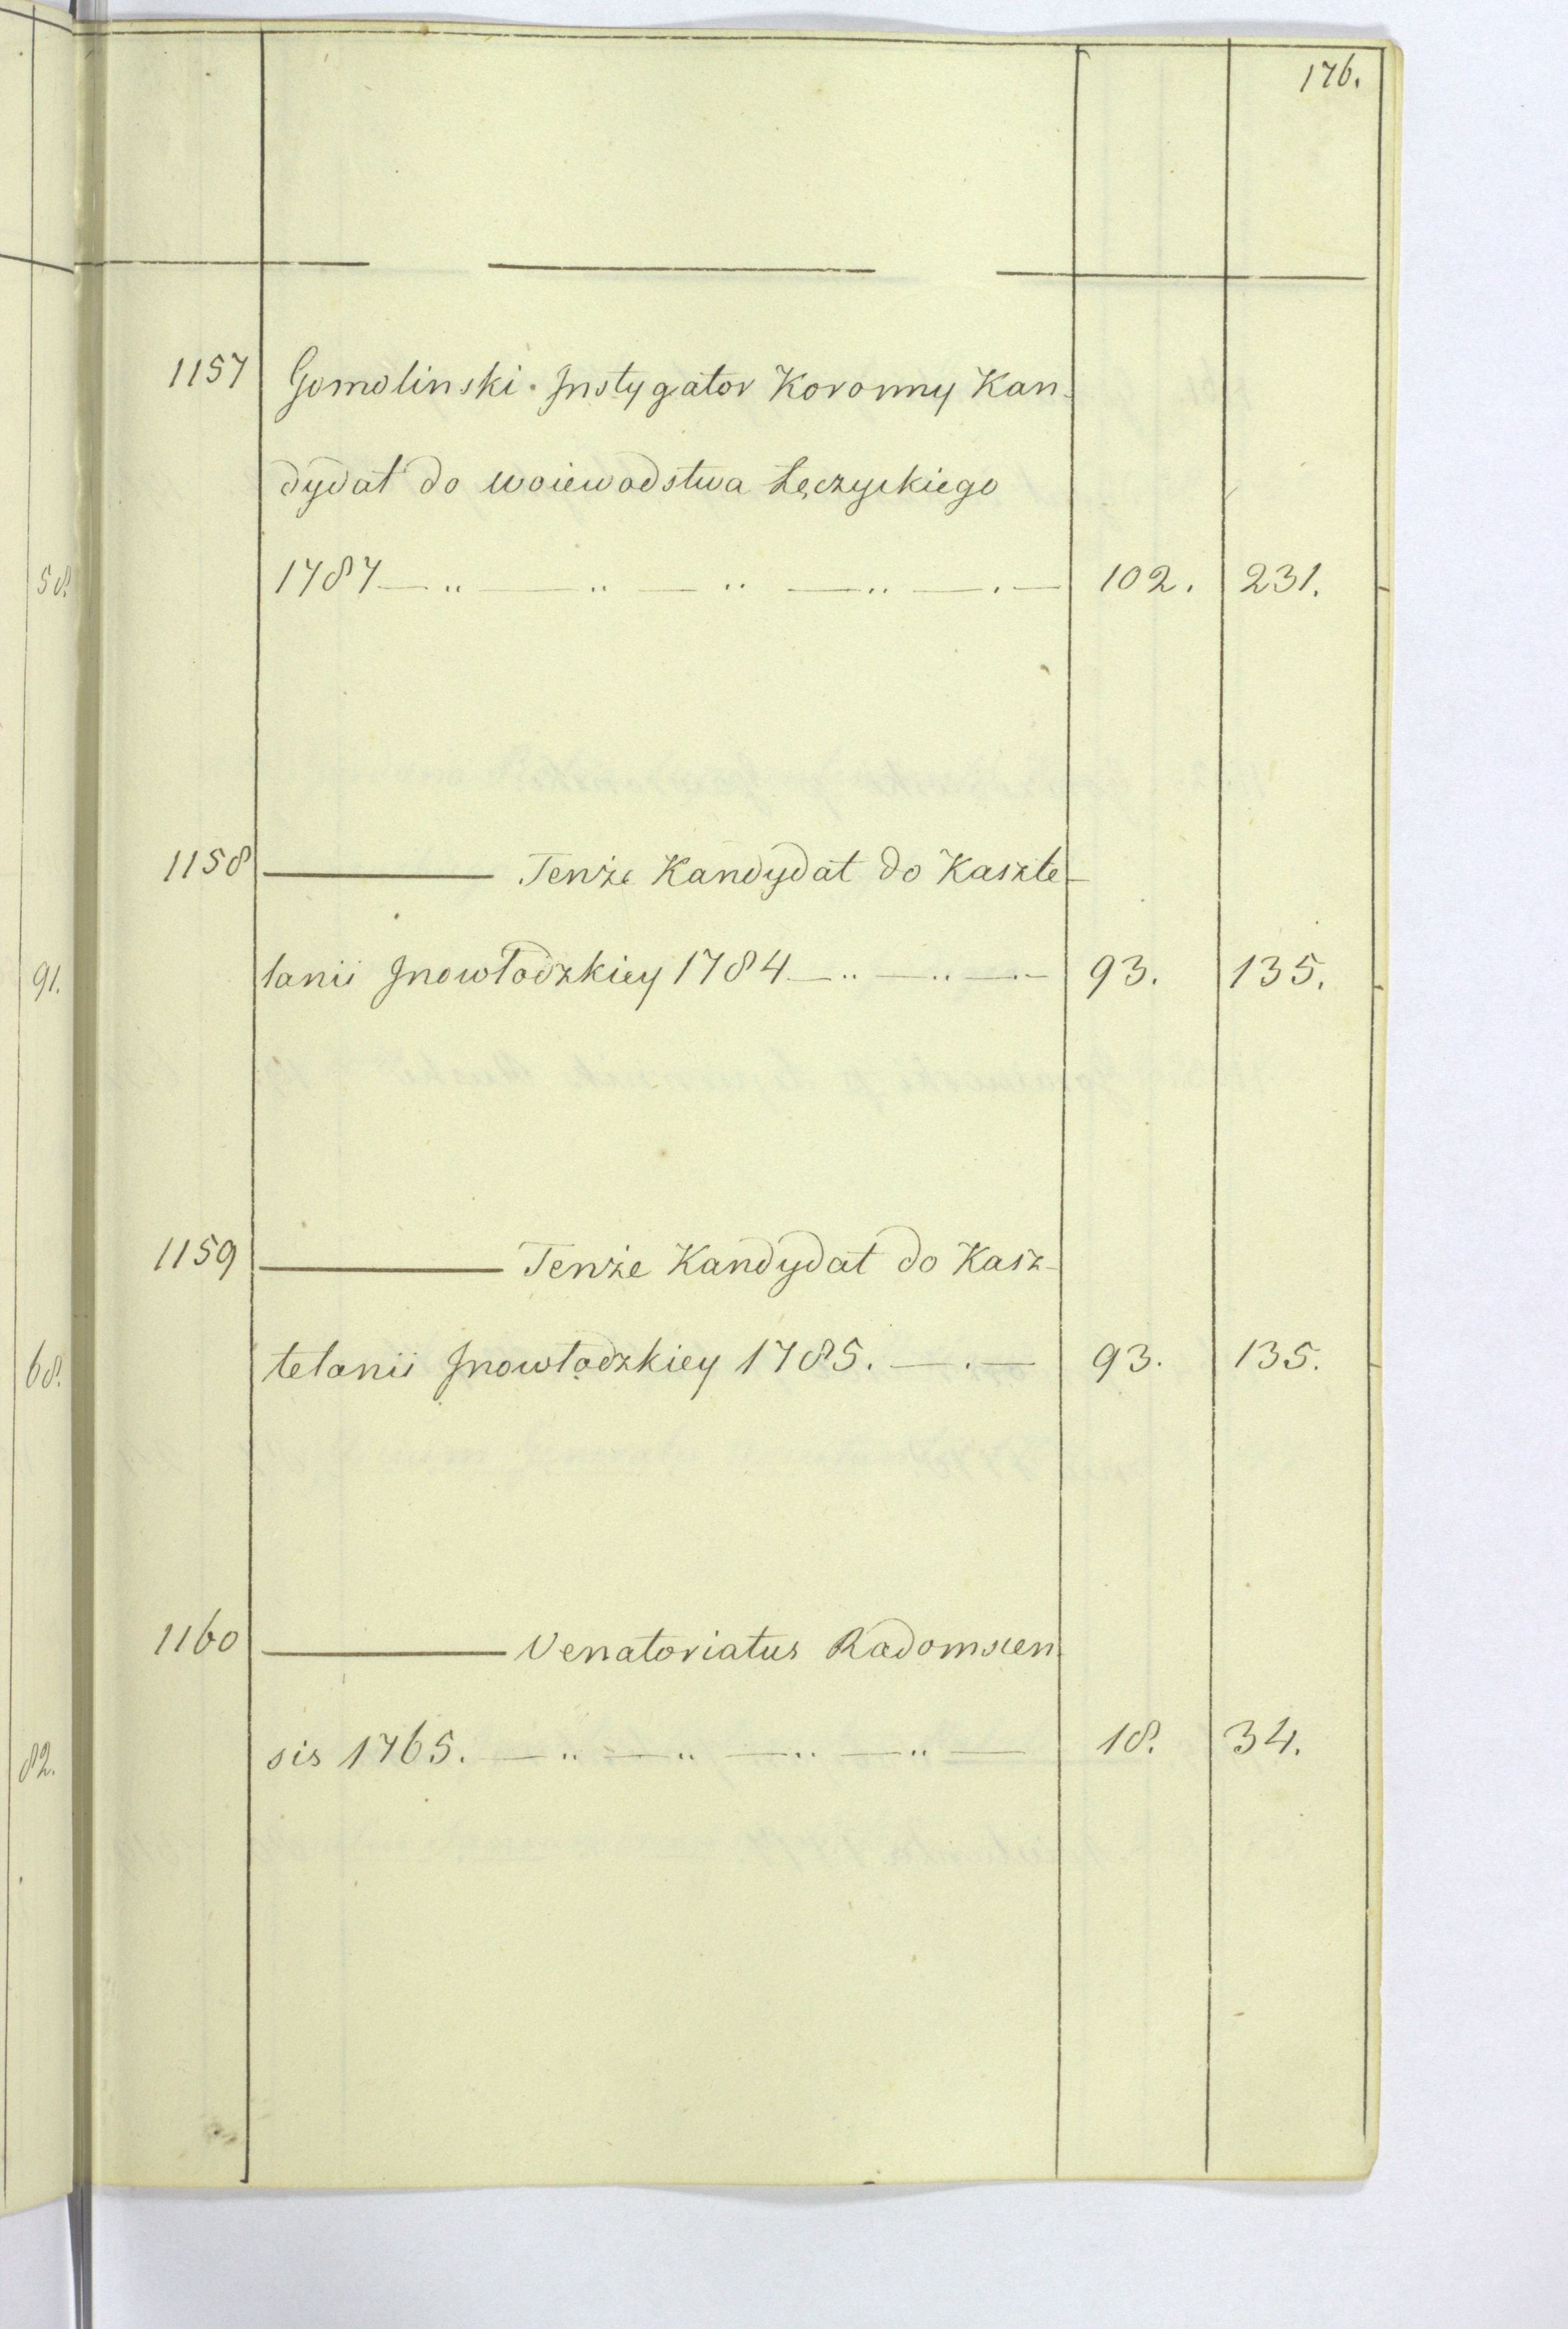 176.
1157 Gomolinski. Jnstygator Koronny Kan-
dydat do woiewodstwa Łęczyckiego
1787 — .. — .. — .. — .. — . — 102. 231.
58.
1158 ——— Tenże Kandydat do Kaszte-
lanii Jnowłodzkiey 1784 — .. — .. — . — 93. 135.
91.
1159 ——— Tenże Kandydat do Kasz-
telanii Jnowłodzkiey 1785. — . — 93. 135.
68.
1160 ——— Venatoriatus Radomscen-
sis 1765. — .. — .. — .. — .. — 18. 34.
82.